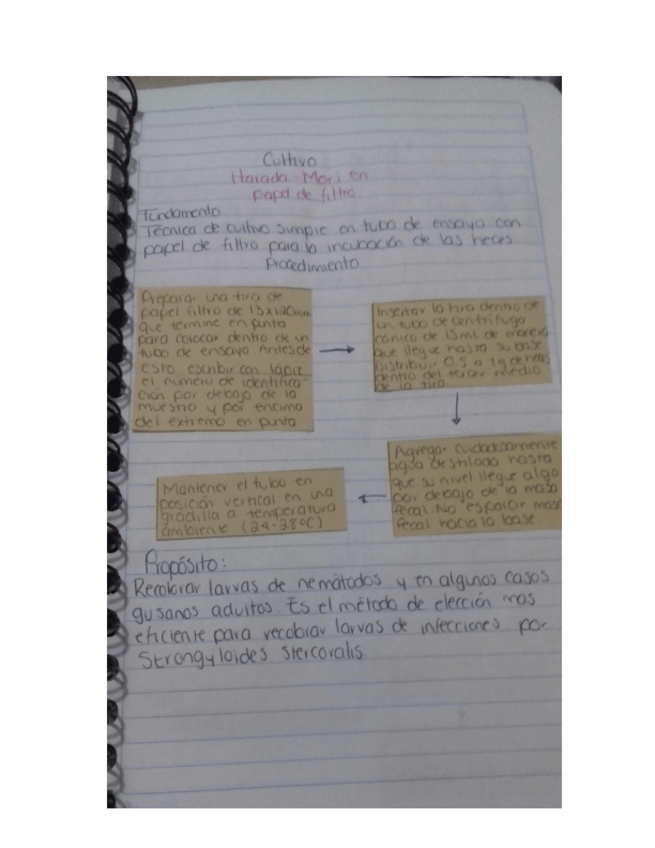 Cultivo
Harada-Mori en
papel de filtro
Fundamento
Técnica de cultivo simple en tubo de ensayo con
papel de filtro para la incubación de las heces
Procedimiento
Preparar una tira de
papel filtro de 13x120mm
que termine en punta
para colocar dentro de un
tubo de ensayo. Antes de
esto escribir con lápiz
el número de identifica-
ción por debajo de la
muestra y por encima
del extremo en punta
Insertar la tira dentro de
un tubo de centrifuga
cónico de 15mL de manera
que llegue hasta su base
Distribuir 0.5 a 1g de heces
dentro del tercer medio
de la tira
Agregar cuidadosamente
agua destilada hasta
que su nivel llegue algo
por debajo de la masa
fecal. No esparcir masa
fecal hacia la base
Mantener el tubo en
posición vertical en una
gradilla a temperatura
ambiente (24-28°C)
Propósito:
Recobrar larvas de nemátodos y en algunos casos
gusanos adultos. Es el método de elección mas
eficiente para recobrar larvas de infecciones por
Strongyloides stercoralis